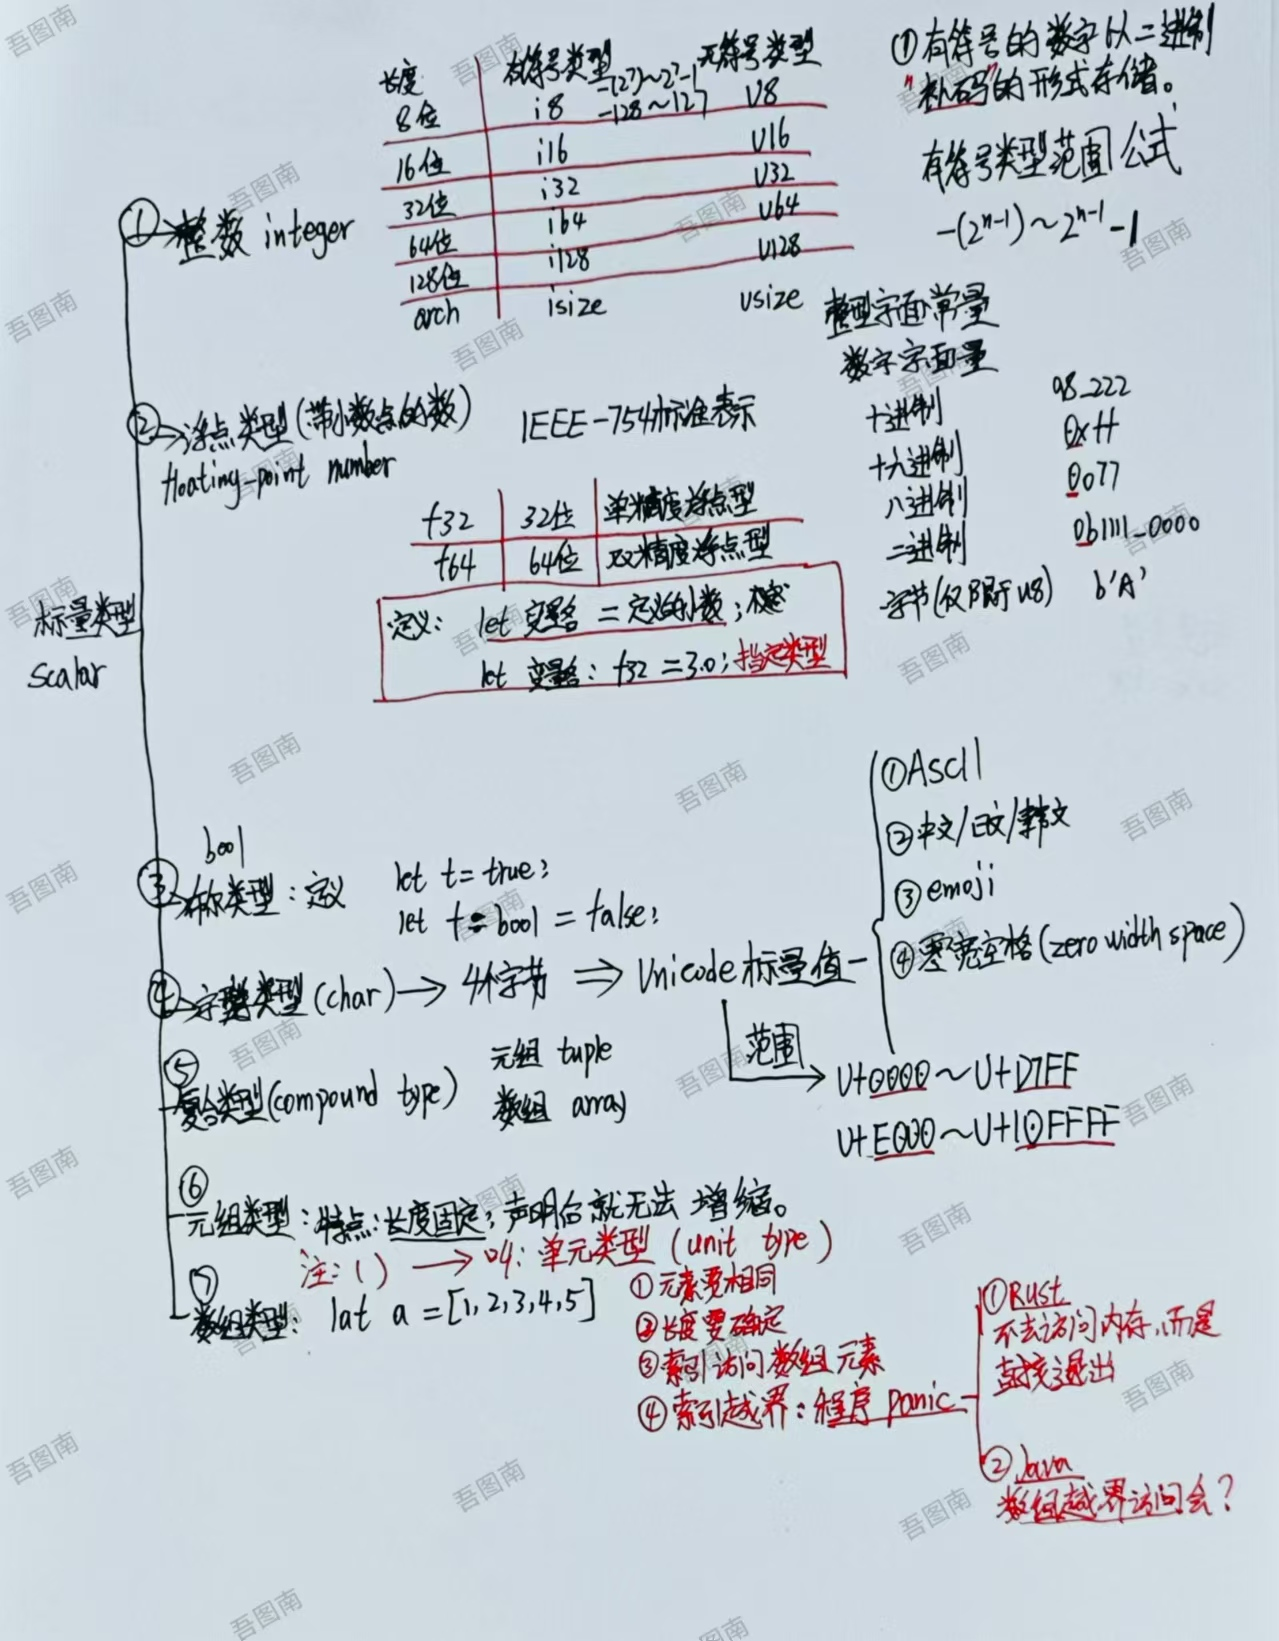 标量类型
scalar
①整数 integer
长度 有符号类型 -(2⁷)~2⁷-1 无符号类型
8位 i8 -128~127 U8
16位 i16 U16
32位 i32 U32
64位 i64 U64
128位 i128 U128
arch isize usize
①有符号的数字以二进制
"补码"的形式存储。
有符号类型范围公式
-(2ⁿ⁻¹)~2ⁿ⁻¹-1
整型字面常量
数字字面量
十进制 98_222
十六进制 0xff
八进制 0o77
二进制 0b1111_0000
字节(仅限于u8) b'A'
②浮点类型(带小数点的数) IEEE-754标准表示
floating-point number
f32 32位 单精度浮点型
f64 64位 双精度浮点型
定义: let 变量名 = 定义的小数;
let 变量名: f32 = 3.0; 指定类型
bool
③布尔类型: 定义 let t = true;
let f = bool = false;
④字符类型(char)→4个字节⇒Unicode标量值
①Ascll
②中文/日文/韩文
③emoji
④零宽空格(zero width space)
范围
U+0000~U+D7FF
U+E000~U+10FFFF
⑤
复合类型(compound type) 元组 tuple
数组 array
⑥
元组类型: 特点:长度固定;声明后就无法增缩。
注:()→叫:单元类型(unit type)
⑦
数组类型: lat a = [1,2,3,4,5]
①元素要相同
②长度要确定
③索引访问数组元素
④索引越界:程序 panic
①Rust
不去访问内存,而是
直接退出
②Java
数组越界访问会?
吾图南